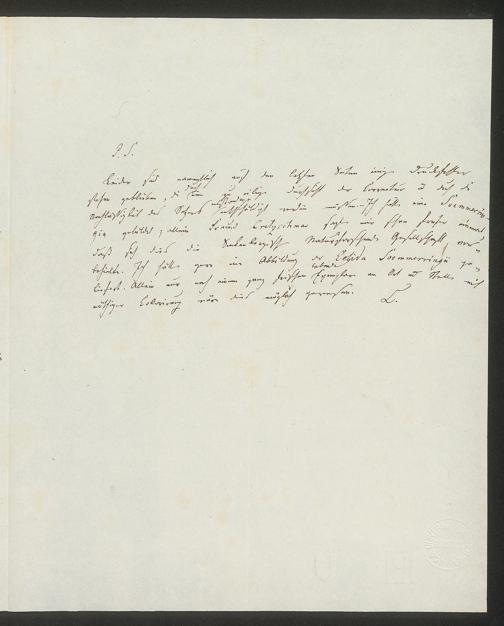 P. S.
Leider sind namentlich auf den letzten Seiten einige Druckfehler
stehen geblieben, die zu eilige Durchsicht der Correctur u daß die
Nachlässigkeit des Setzers entschuldigt werden müssen. Ich hätte eine Soemmerin-
gia gebildet; allein Freund Cretzschmar sagte mir schon früher einmal
daß sich dies die Senkenbergische Naturforschende Gesellschaft vor-
behielte. Ich hätte gern eine Abbildung der Lebias Soemmerringii ge-
liefert. Allein nur nach einem ganz frischen Exemplare an Ort u Stelle mit
nöthiger Colorirung wäre dies möglich gewesen.
L.